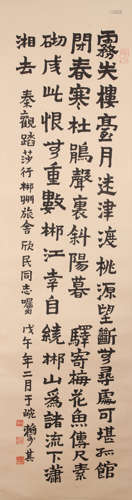 霧失樓臺月迷津渡桃源望斷无尋處可堪孤館
閉春寒杜鵑聲裏斜陽暮 驛寄梅花魚傳尺素
砌成此恨无重數郴江幸自繞郴山爲誰流下瀟
湘去 秦觀踏莎行郴州旅舍 欣民同志囑 戊午年二月于皖 賴少其